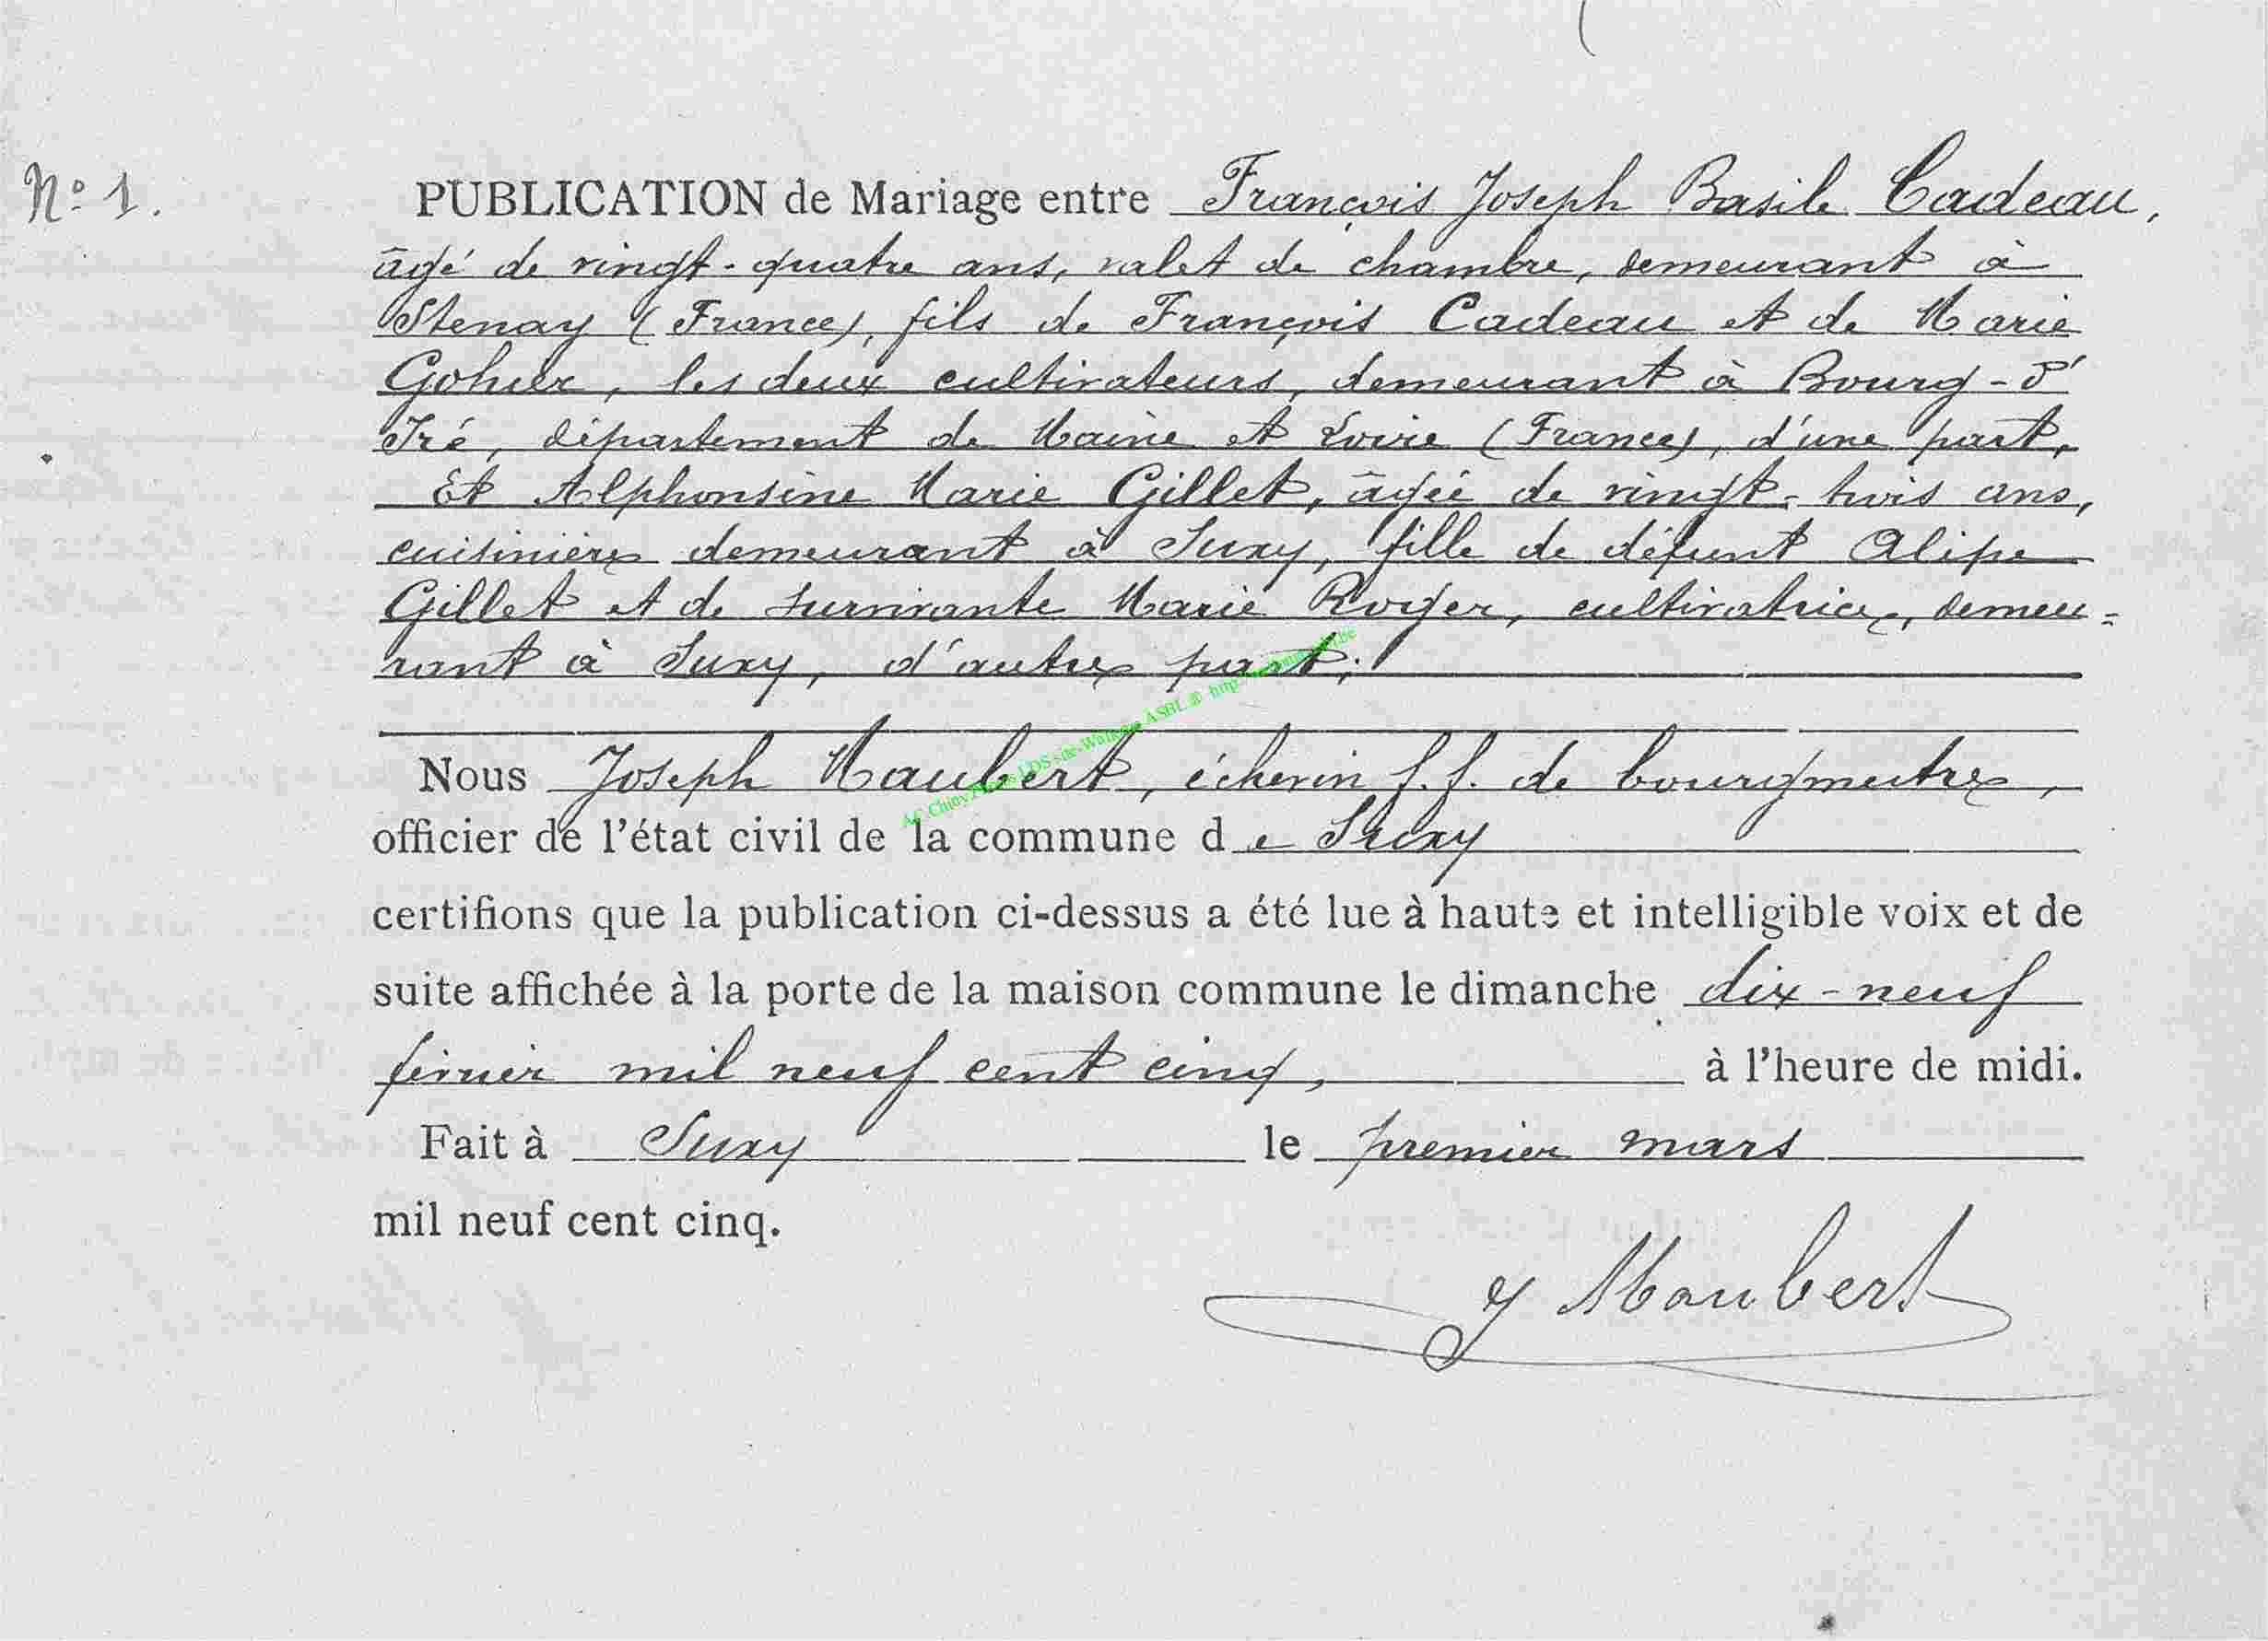 N° 1.
PUBLICATION de Mariage entre François Joseph Basile Cadeau,
âgé de vingt-quatre ans, valet de chambre, demeurant à
Stenay (France), fils de François Cadeau et de Marie
Gohier, les deux cultivateurs, demeurant à Bourg-d'
Iré, département de Maine et Loire (France), d'une part,
Et Alphonsine Marie Gillet, âgée de vingt-trois ans,
cuisinière demeurant à Suxy, fille de défunt Alipe
Gillet et de survivante Marie Roger, cultivatrice, demeu=
rant à Suxy, d'autre part;
AC Chiny ASBL ©
Nous Joseph Maubert, échevin f.f. de bourgmestre,
officier de l'état civil de la commune de Suxy
certifions que la publication ci-dessus a été lue à haute et intelligible voix et de
suite affichée à la porte de la maison commune le dimanche dix-neuf
février mil neuf cent cinq, à l'heure de midi.
Fait à Suxy le premier mars
mil neuf cent cinq.
J Maubert